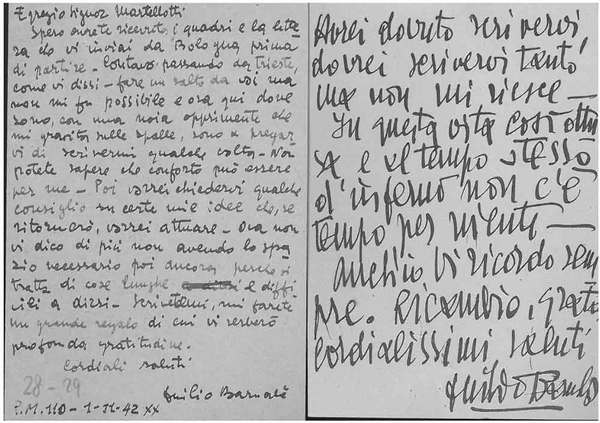 Egregio Signor Martellotti
Spero avrete ricevuto, i quadri e la lette
ra che vi inviai da Bologna prima
di partire - Contavo passando da Trieste,
come vi dissi - fare un salto da voi ma
non mi fu possibile e ora qui dove
sono, con una noia opprimente che
mi gravita sulle spalle, sono a pregar
vi di scrivermi qualche volta - Non
potete sapere che conforto può essere
per me - Poi vorrei chiedervi qualche
consiglio su certe mie idee che, se
ritornerò, vorrei attuare - Ora non
vi dico di più non avendo lo spa
zio necessario poi ancora perché si
tratta di cose lunghe e diffi
cili a dirsi - Scrivetemi, mi farete
un grande regalo di cui vi serberò
profonda gratitudine.
Cordiali saluti
28 - 29
P.M. 110 - 1-11-42 XX
Avrei dovuto scrivervi
dovrei scrivervi tanto
ma non mi riesce -
In questa vita così
e al tempo stesso
d'inferno non c'è
tempo per niente -
Vi ricordo sem
pre. Ricambio, grato
cordialissimi saluti